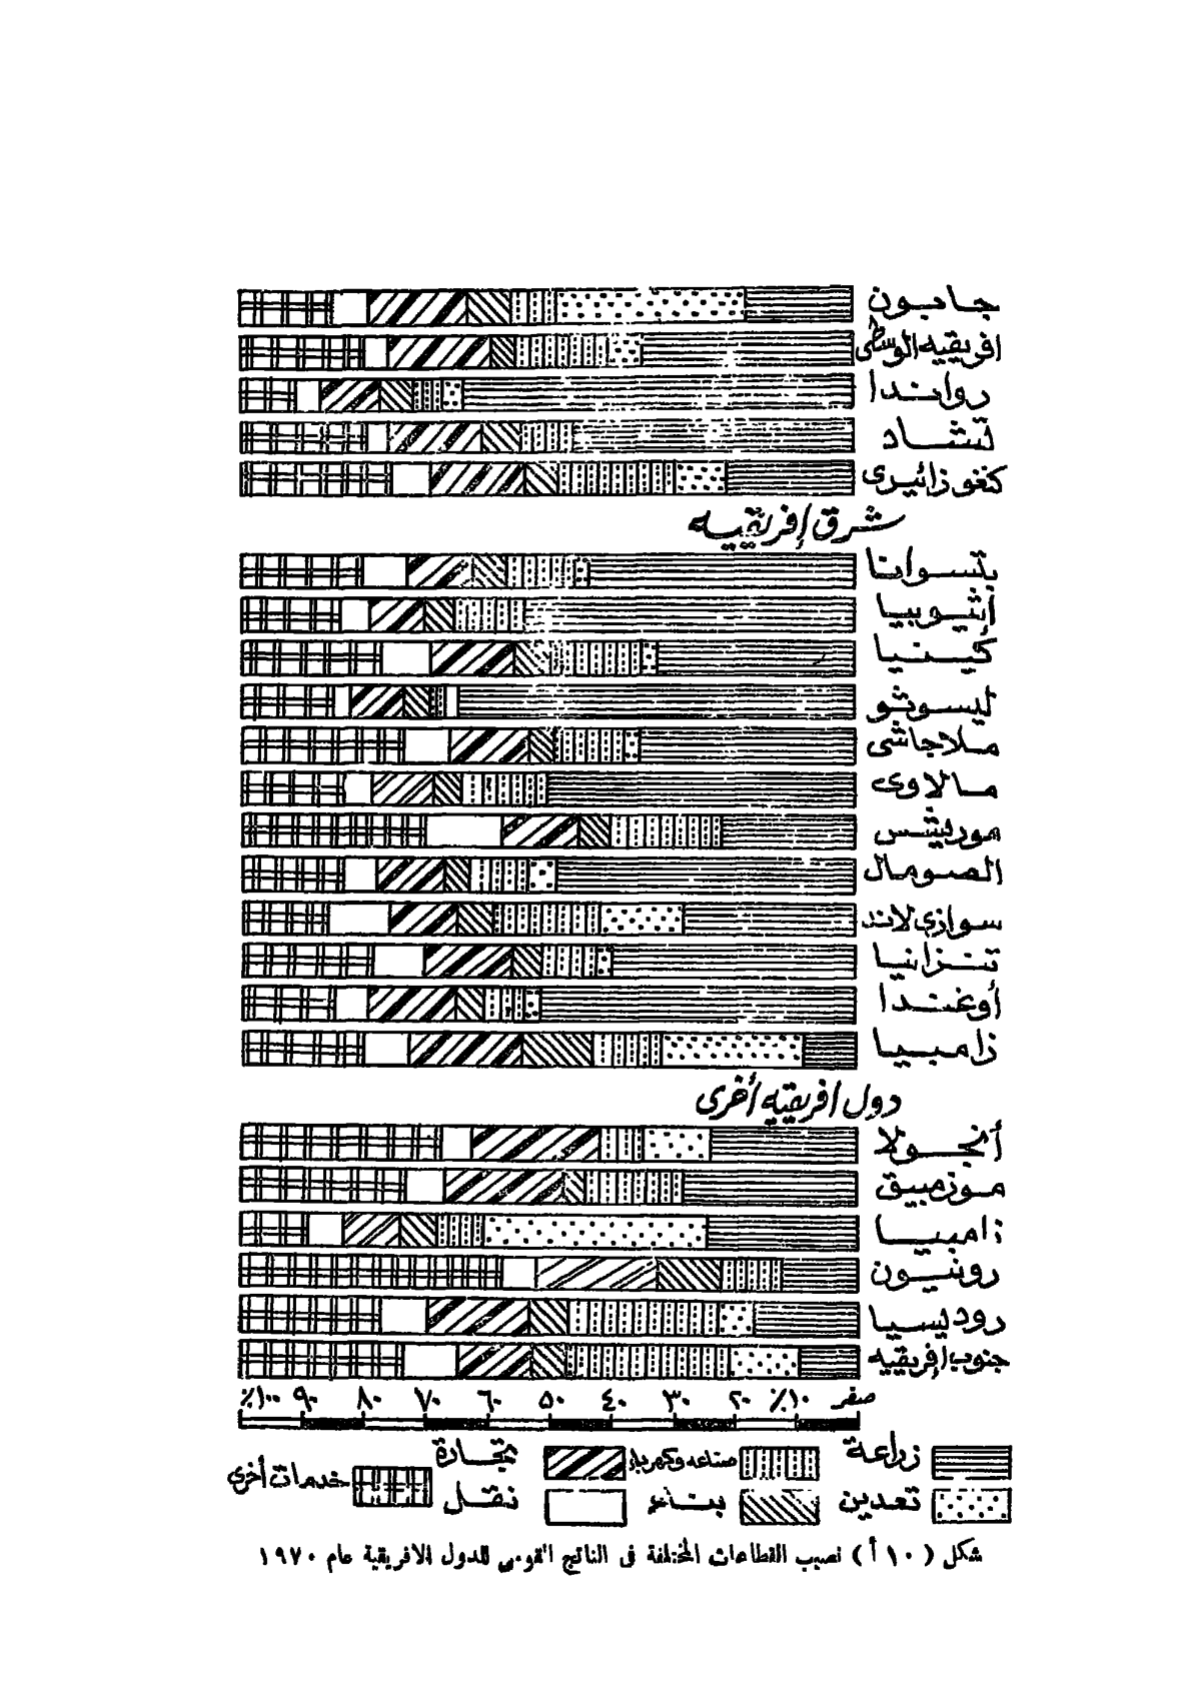 جابون
افريقيه الوسطى
رواندا
تشاد
كنغو زائيرى
شرق إفريقيه
بتسوانا
أثيوبيا
كينيا
ليسوتو
ملاجاشى
مالاوى
موريتس
الصومال
سوازى لاند
تنزانيا
أوغندا
زامبيا
دول افريقيه أخرى
أنجولا
موزمبيق
زامبيا
رونيون
روديسيا
جنوب إفريقيه
صفر ١٠٪ ٢٠ ٣٠ ٤٠ ٥٠ ٦٠ ٧٠ ٨٠ ٩٠ ١٠٠٪
زراعة صناعه وكهرباء تجارة
خدمات أخرى
تعدين بناء نقل
شكل ( ١٠ أ ) نصيب القطاعات المختلفة فى الناتج القومى للدول الافريقية عام ١٩٧٠